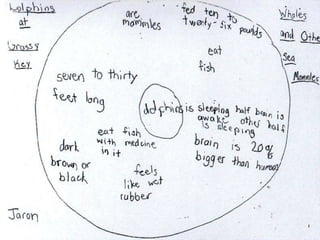 Dolphins
at
Grassy
Key
are
mommles
fed ten to
twenty-six pounds
Wholes
and Othe
Sea
Mammles
eat
fish
seven to thirty
feet long
dolphins
is sleeping half brain is
awake other half
is sleeping
brain is 20%
bigger than humans
eat fish
with medcine
in it
dark
brown or
black
feels
like wet
rubber
Jaron